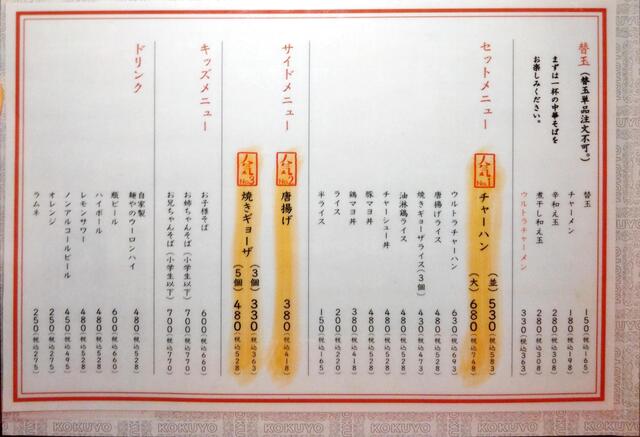 替玉(替玉単品注文不可。)
まずは一杯の中華そばを
お楽しみください。
替玉 150(税込165)
チャーメン 180(税込198)
辛和え玉 280(税込308)
煮干し和え玉 280(税込308)
ウルトラチャーメン 330(税込363)
セットメニュー
人気 No.1
チャーハン (並)530(税込583)
(大)680(税込748)
ウルトラチャーハン 630(税込693)
唐揚げライス 480(税込528)
焼きギョーザライス(3個) 430(税込473)
油淋鶏ライス 480(税込528)
チャーシュー丼 480(税込528)
豚マヨ丼 480(税込528)
鶏マヨ丼 380(税込418)
ライス 200(税込220)
半ライス 150(税込165)
サイドメニュー
人気 No.2
唐揚げ 380(税込418)
人気 No.3
焼きギョーザ (3個)330(税込363)
(5個)480(税込528)
キッズメニュー
お子様そば 600(税込660)
お姉ちゃんそば(小学生以下) 700(税込770)
お兄ちゃんそば(小学生以下) 700(税込770)
ドリンク
自家製
麺やのウーロンハイ 480(税込528)
瓶ビール 600(税込660)
ハイボール 480(税込528)
レモンサワー 480(税込528)
ノンアルコールビール 450(税込495)
オレンジ 250(税込275)
ラムネ 250(税込275)
KOKUYO KOKUYO KOKUYO KOKUYO KOKUYO